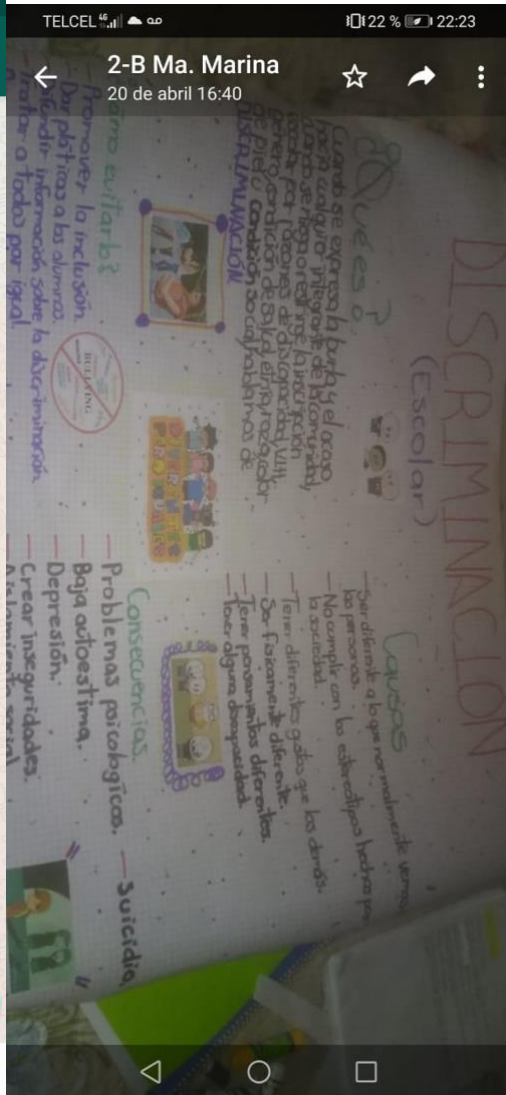 TELCEL 4G 22 % 22:23
2-B Ma. Marina
20 de abril 16:40
DISCRIMINACIÓN
(Escolar)
¿Qué es?
Cuando se expresa la burla y el acoso
hacia cualquier integrante de la comunidad,
cuando se niega o restringe la inscripción
escolar por razones de discapacidad, VIH,
genero, condición de salud, etnia, raza, color
de piel o condición social hablamos de
DISCRIMINACIÓN
Causas
—Ser diferente a lo que normalmente vemos
las personas.
—No cumplir con los estereotipos hechos por
la sociedad.
—Tener diferentes gustos que los demás.
—Ser fisicamente diferente.
—Tener pensamientos diferentes.
—Tener alguna discapacidad.
DIFERENTES
PERO IGUALES
BULLYING
evitarlo?
—Promover la inclusión.
Dar pláticas a los alumnos.
información sobre la discriminación
Tratar a todos por igual
Consecuencias.
—Problemas psicologicos. —Suicidio,
—Baja autoestima.
—Depresión.
—Crear inseguridades.
Aislamiento social